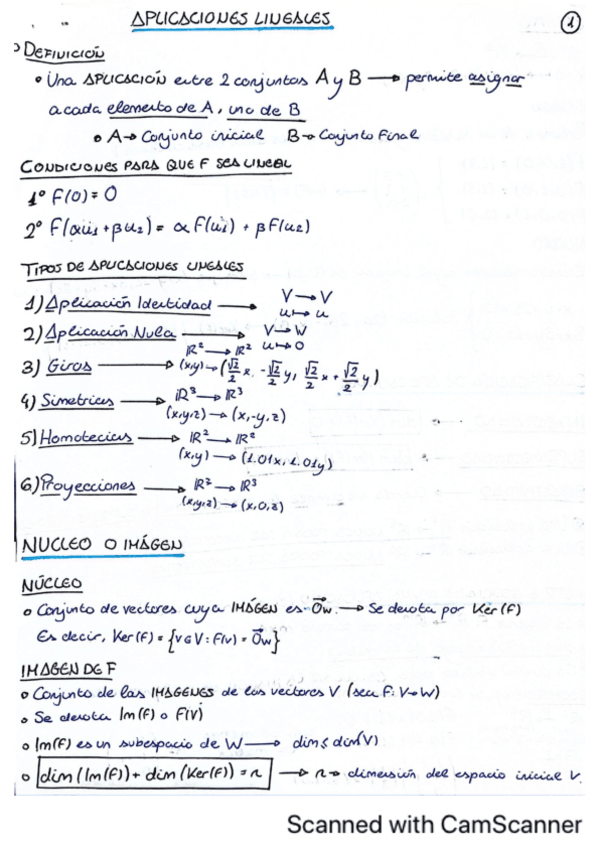 APLICACIONES LINEALES
1
DEFINICIÓN
• Una APLICACIÓN entre 2 conjuntos A y B → permite asignar
a cada elemento de A, uno de B
• A → Conjunto inicial B → Conjunto Final
CONDICIONES PARA QUE F SEA LINEAL
1º F(0) = 0
2º F(αu₁ + βu₂) = αF(u₁) + βF(u₂)
TIPOS DE APLICACIONES LINEALES
1) Aplicación Identidad → V → V
u ↦ u
2) Aplicación Nula → V → W
u ↦ 0
3) Giros → ℝ² → ℝ²
(x,y) → (√2/2 x, -√2/2 y, √2/2 x + √2/2 y)
4) Simetrías → ℝ³ → ℝ³
(x,y,z) → (x,-y,z)
5) Homotecias → ℝ² → ℝ²
(x,y) → (1.01x, 1.01y)
6) Proyecciones → ℝ³ → ℝ³
(x,y,z) → (x,0,z)
NUCLEO O IMÁGEN
NÚCLEO
• Conjunto de vectores cuya IMÁGEN es 0⃗w. → Se denota por Ker(F)
Es decir, Ker(F) = {v∈V: F(v) = 0⃗w}
IMAGEN DE F
• Conjunto de las IMÁGENES de los vectores V (sea F: V→W)
• Se denota Im(F) o F(V)
• Im(F) es un subespacio de W → dim ≤ dim(V)
• dim(Im(F)) + dim(Ker(F)) = n → n → dimensión del espacio inicial V.
Scanned with CamScanner